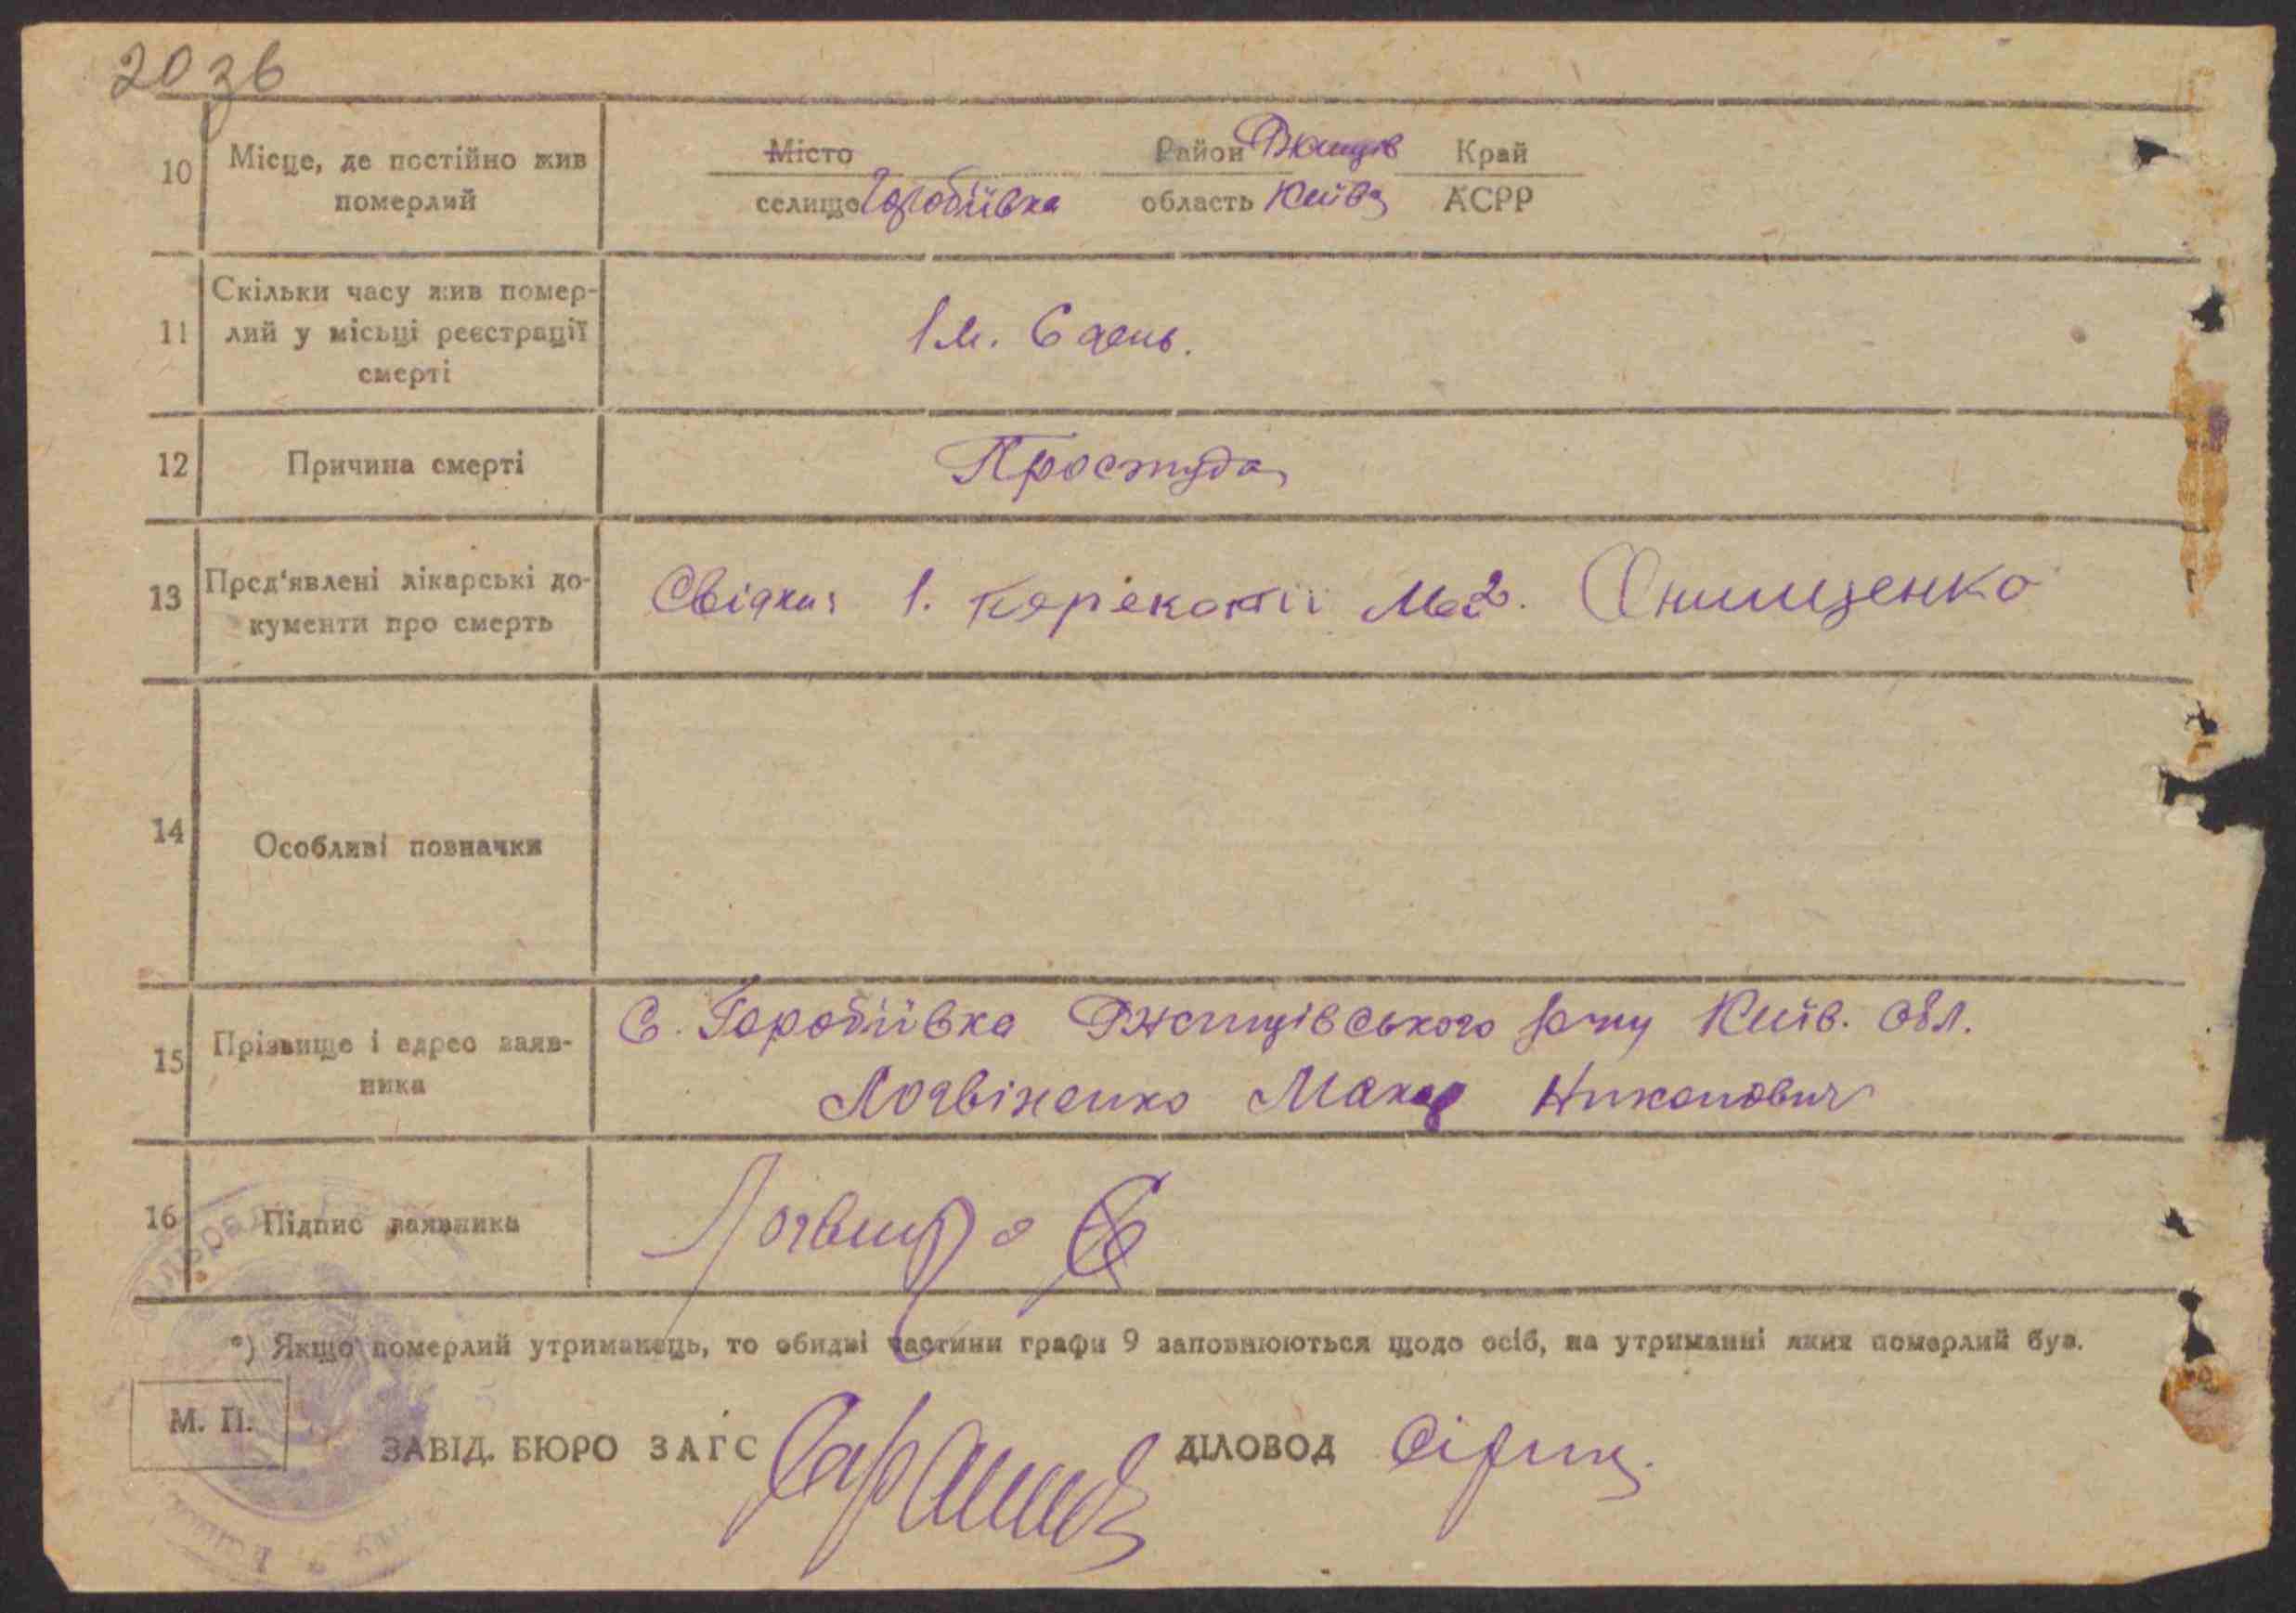 20 зв
10 Місце, де постійно жив померлий
Місто Район Ржищів Край
селище Горобіївка область Київ АСРР
11 Скільки часу жив помер-
лий у місьці реєстрації
смерті
1 м. 6 день.
12 Причина смерті
Простуда
13 Пред'явлені лікарські до-
кументи про смерть
Свідки 1. Онищенко
14 Особливі позначки
15 Прізвище і адрес заяв-
ника
С. Горобіївка Ржищівського р-ну Київ. обл.
Логвіненко Макар
16 Підпис заявника
*) Якщо померлий утриманець, то обидві частини графи 9 заповнюються щодо осіб, на утриманні яких померлий був.
М. П.
ЗАВІД. БЮРО ЗАГС ДІЛОВОД